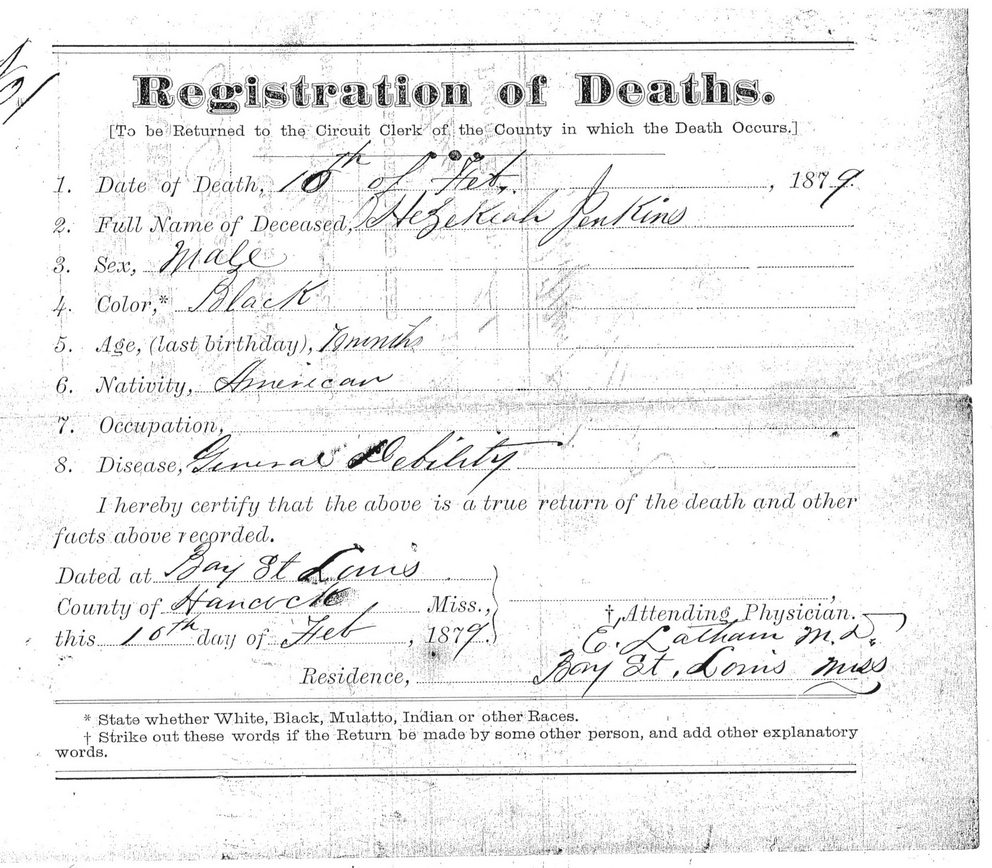 Registration of Deaths.
[To be Returned to the Circuit Clerk of the County in which the Death Occurs.]
1. Date of Death, 10th of Feb. , 1879.
2. Full Name of Deceased, Hezekiah Jenkins
3. Sex, Male
4. Color,* Black
5. Age, (last birthday), 7 months
6. Nativity, American
7. Occupation,
8. Disease, General Debility
I hereby certify that the above is a true return of the death and other
facts above recorded.
Dated at Bay St Louis
County of Hancock Miss.,
†, Attending Physician.
this 10th day of Feb , 1879.
E. Latham M.D.
Residence, Bay St. Louis Miss
* State whether White, Black, Mulatto, Indian or other Races.
† Strike out these words if the Return be made by some other person, and add other explanatory
words.